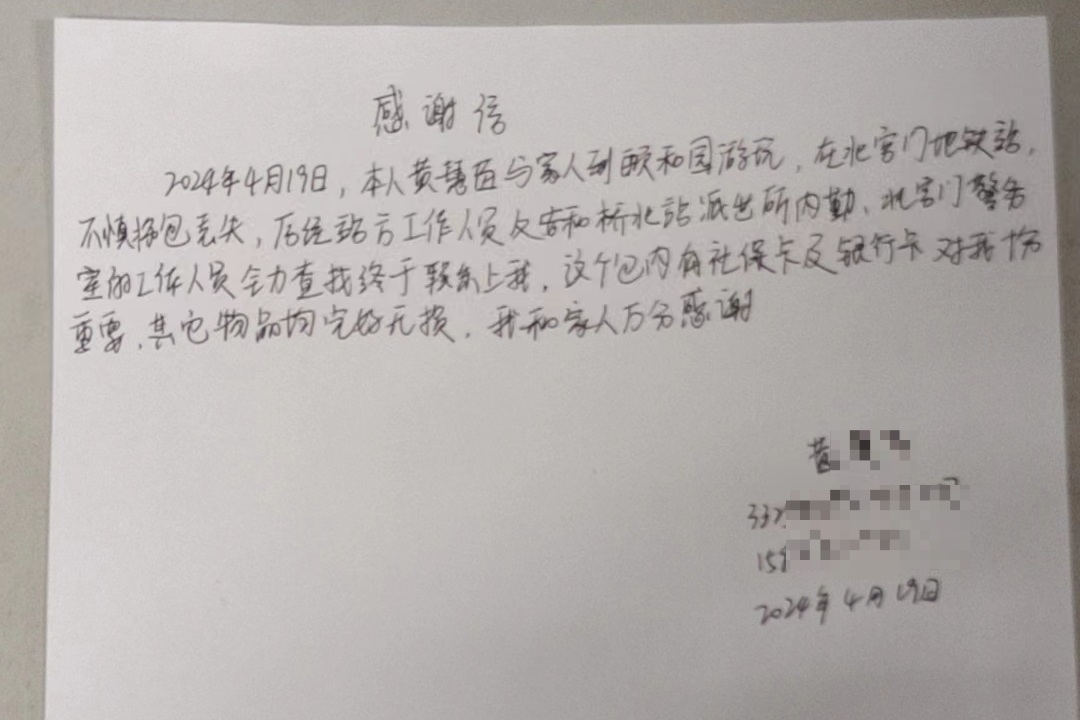 感谢信
2024年4月19日，本人黄慧 与家人到颐和园游玩，在北宫门地铁站，
不慎将包丢失，后经站方工作人员及安和桥北站派出所内勤、北宫门警务
室的工作人员全力查找终于联系上我，这个包内有社保卡及银行卡对我
重要，其它物品均完好无损，我和家人万分感谢
黄
332
159
2024年4月19日